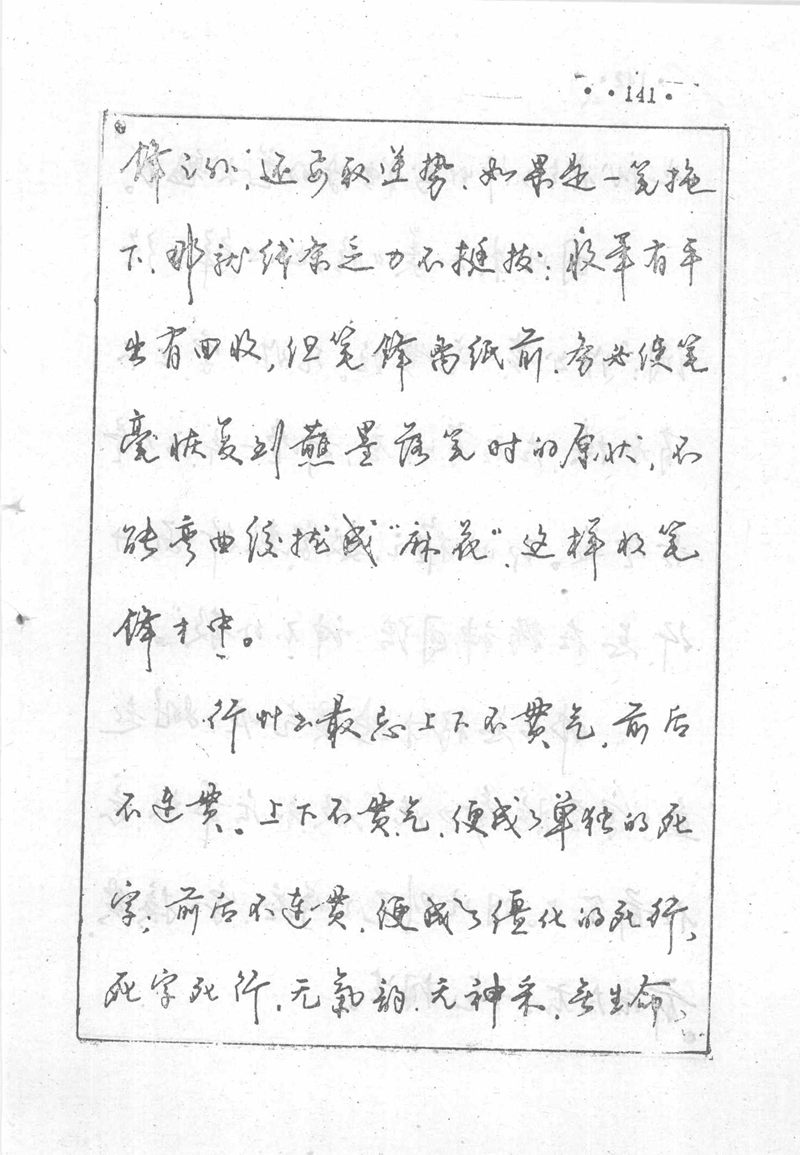 ·141·
锋之外,还要取逆势.如果是一笔拖
下,那就线条乏力不挺拔;收筆有平
出有回收,但笔锋离纸前,务必使笔
毫恢复到蘸墨落笔时的原状,不
能弯曲绞拢成“麻花”.这样收笔
锋才中。
行草书最忌上下不贯气,前后
不连贯。上下不贯气,便成了单独的死
字;前后不连贯,便成了僵化的死行、
死字死行,无氣韵.无神采,无生命、